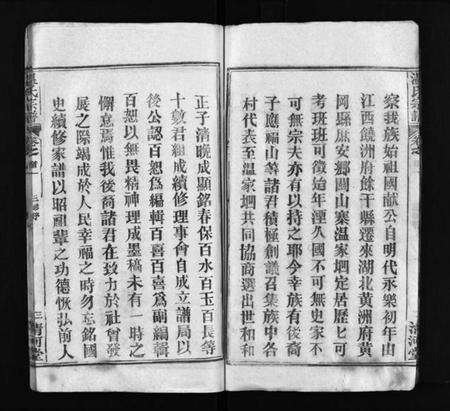 察我族始祖國獻公自明代永樂初年由
江西饒洲府餘干縣遷來湖北黄洲府黄
岡縣庶安鄉團山寨温家垇定居歷匕可
考班班可徵始年湮久國不可無史家不
可無宗夫亦有以持之耶今幸族有後裔
子應福山等諸君積極創議召集族中各
村代表至温家垇共同協商選出世和和
正子清曉成顯銘春保百水百玉百長等
十數君組成續修理事會自成立譜局以
後公認百恕爲編輯百喜百喜爲副編輯
百恕以無畏精神理成墨稿未有一時之
懈怠焉惟我後裔諸君在致力於社會發
展之際竭成於人民幸福之時勿忘銘國
史續修家譜以昭祖輩之功德恢弘前人
温氏宗譜
卷之
清河堂
温氏宗譜
卷之
清河堂